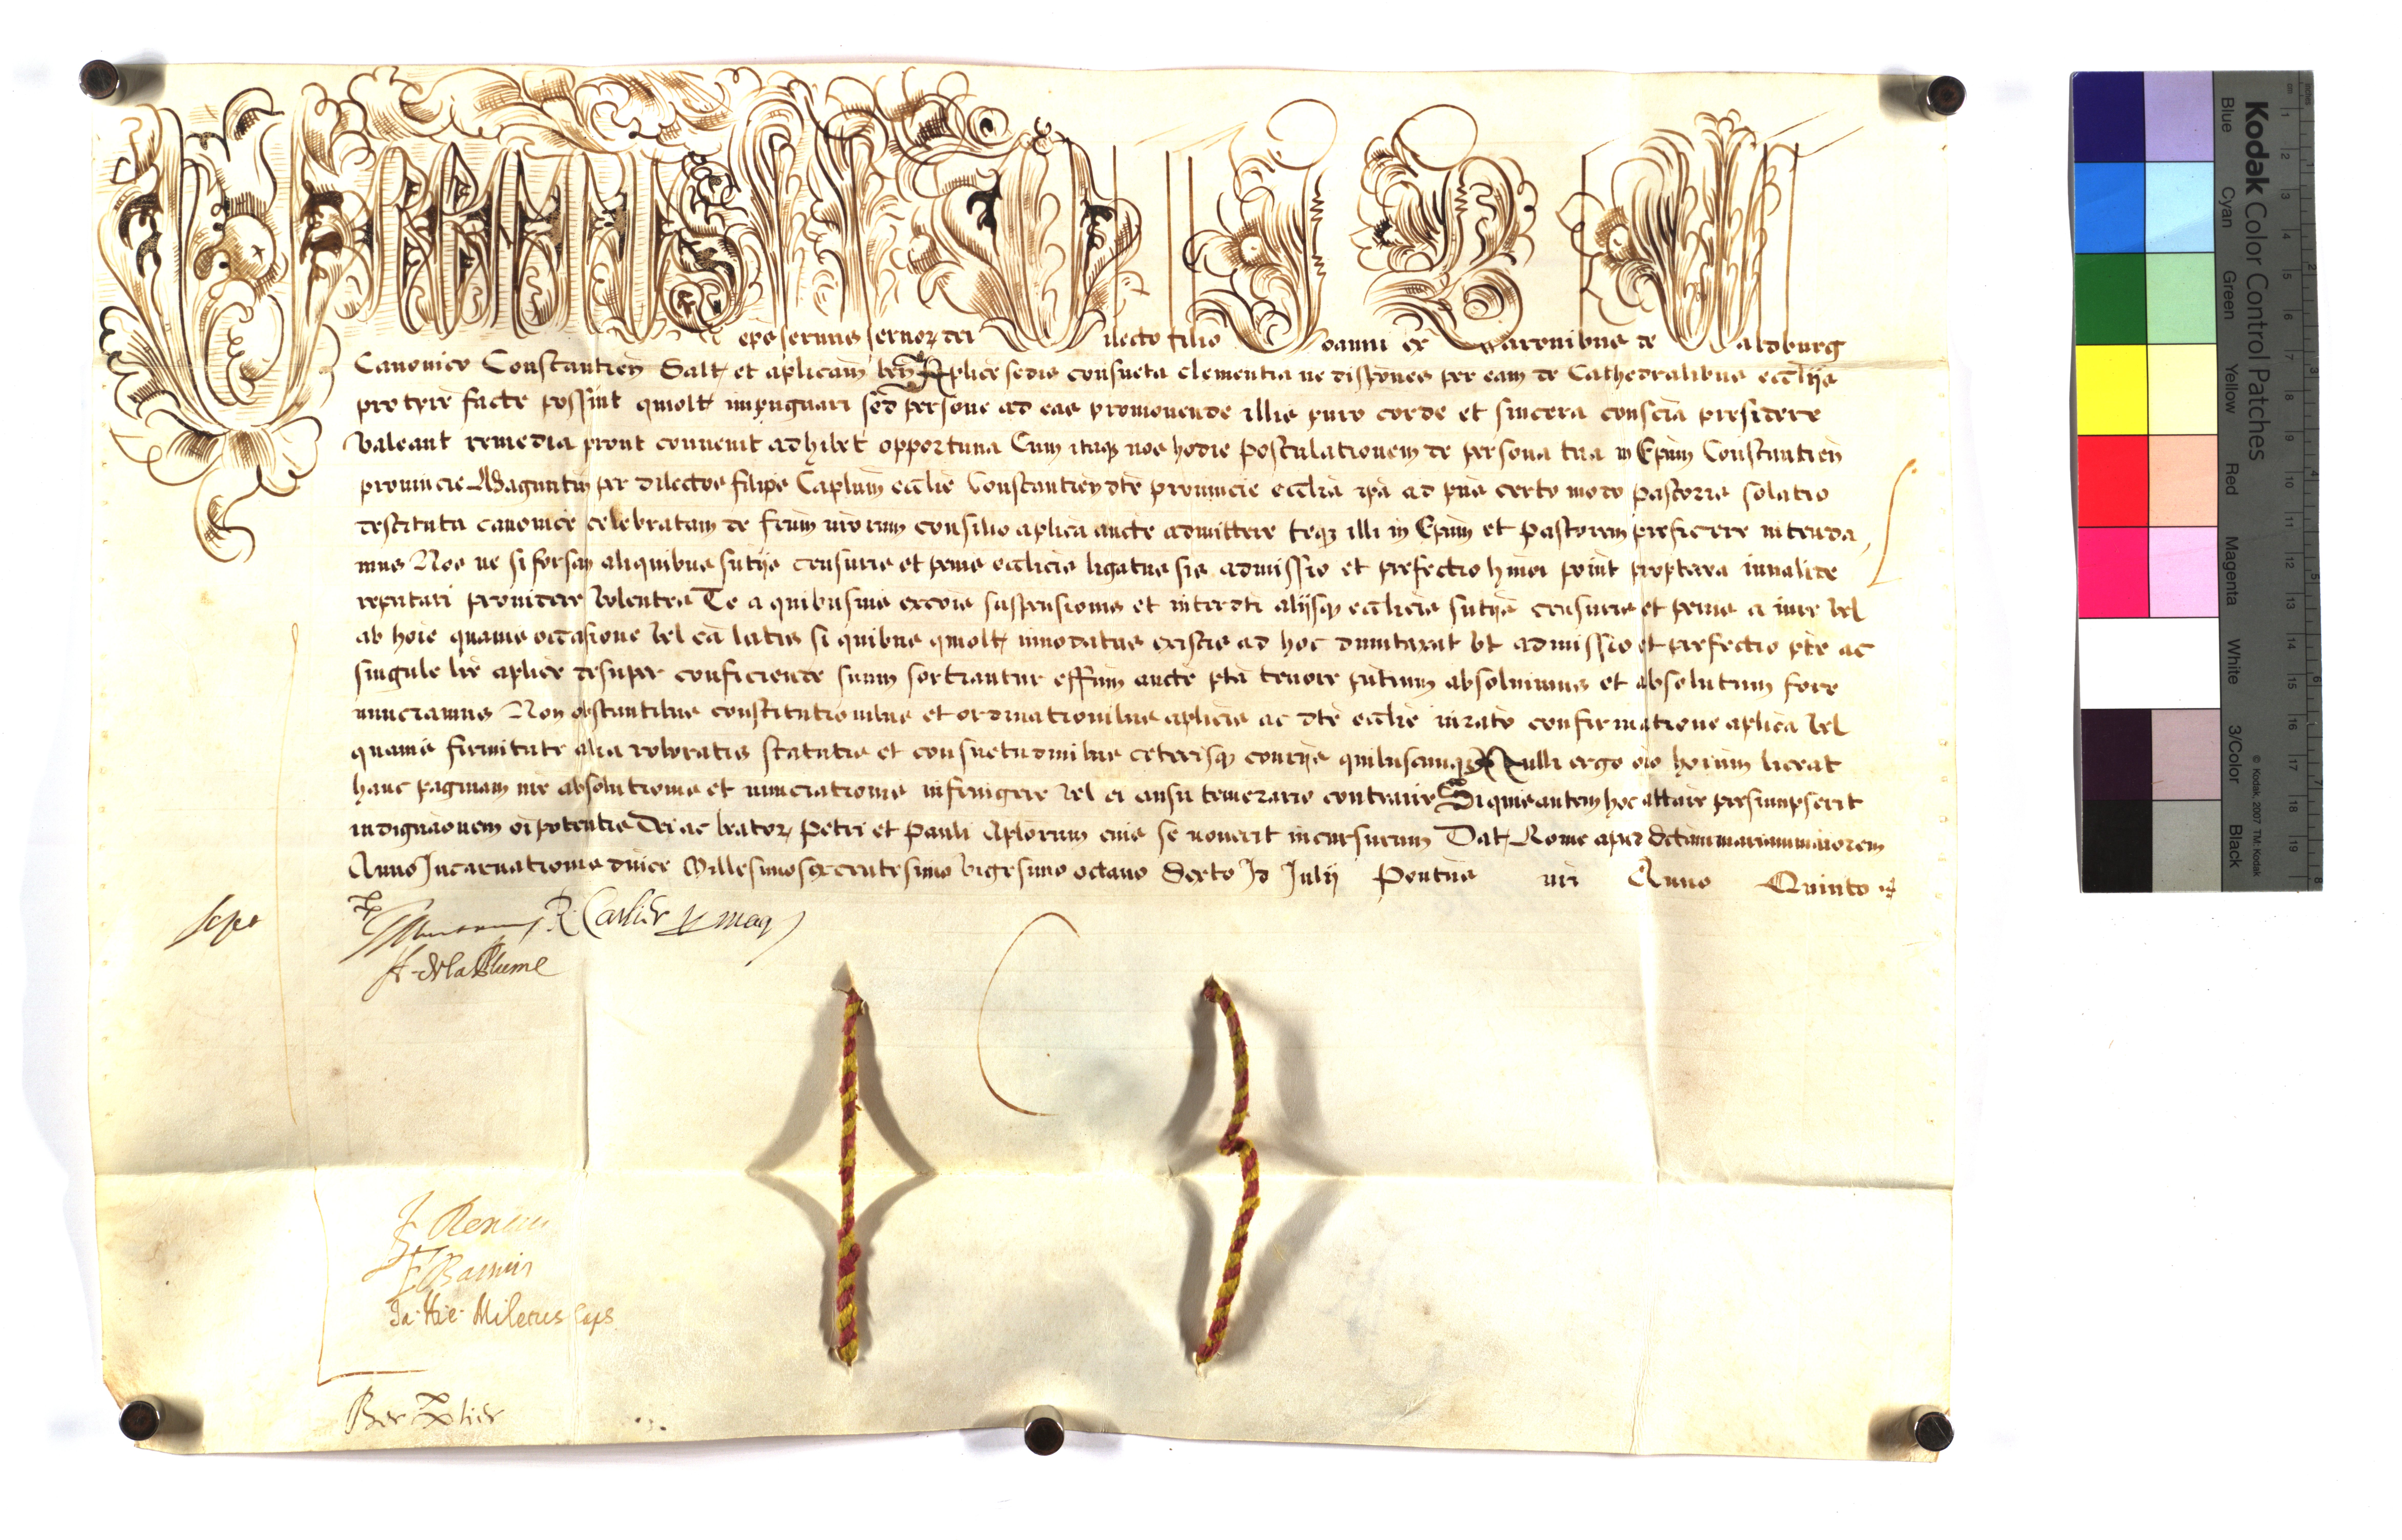 URBANUS
eps seruus seruoꝝ dei Dilecto filio Joanni ex Baronibus de Waldburg
Canonico Constantien Salt et aplicam ben Aplice sedis consueta clementia ne dispones per eam de Cathedralibus ecclijs
pro tpre facte possint quolt impugnari sed persone ad eas promouende illis puro corde et sincera conscia presidere
valeant remedia prout conuenit adhibet opportuna Cum itaqꝫ nos hodie postulationem de persona tua in Epum Constantien
prouincie Maguntin per dilectos filios Caplum ecclie Constantien dte prouincie ecclia ipa ad pns certo modo pastoris solatio
destituta canonice celebratam de frum nrorum consilio aplica aucte admittere teqꝫ illi in Epum et Pastorem preficere intenda
mus Nos ne si forsan aliquibus sntijs censuris et penis ecclicis ligatus sis admissio et prefectio hmoi point propterea inualide
reputari prouidere volentes Te a quibusuis excois suspensionis et interdti alijsqꝫ ecclicis sntijs censuris et penis a iure vel
ab hoie quauis occasione vel ca latis si quibus quolt innodatus existis ad hoc dumtaxat vt admissio et prefectio pte ac
singule lre aplice desuper conficiende suum sortiantur effum aucte pta tenore pntium absoluimus et absolutum fore
nunciamus Non obstantibus constitutionibus et ordinationibus aplicis ac dte ecclie iurato confirmatione aplica vel
quauis firmitate alia roboratis statutis et consuetudinibus ceterisqꝫ contrijs quibuscumqꝫ Nulli ergo oio hoinum liceat
hanc paginam nre absolutionis et nunciationis infringere vel ei ausu temerario contraire Si quis autem hoc attare presumpserit
indignaonem oipotentis Dei ac beatoꝝ Petri et Pauli Aplorum eius se nouerit incursurum Dat Rome apud Sctam mariam maiorem
Anno Incarnationis dnice Millesimosexcentesimo vigesimo octauo Sexto Id Julij Pontus nri Anno Quinto
R. Carlier
A. de la Plume
Ja. Hie. Miletus